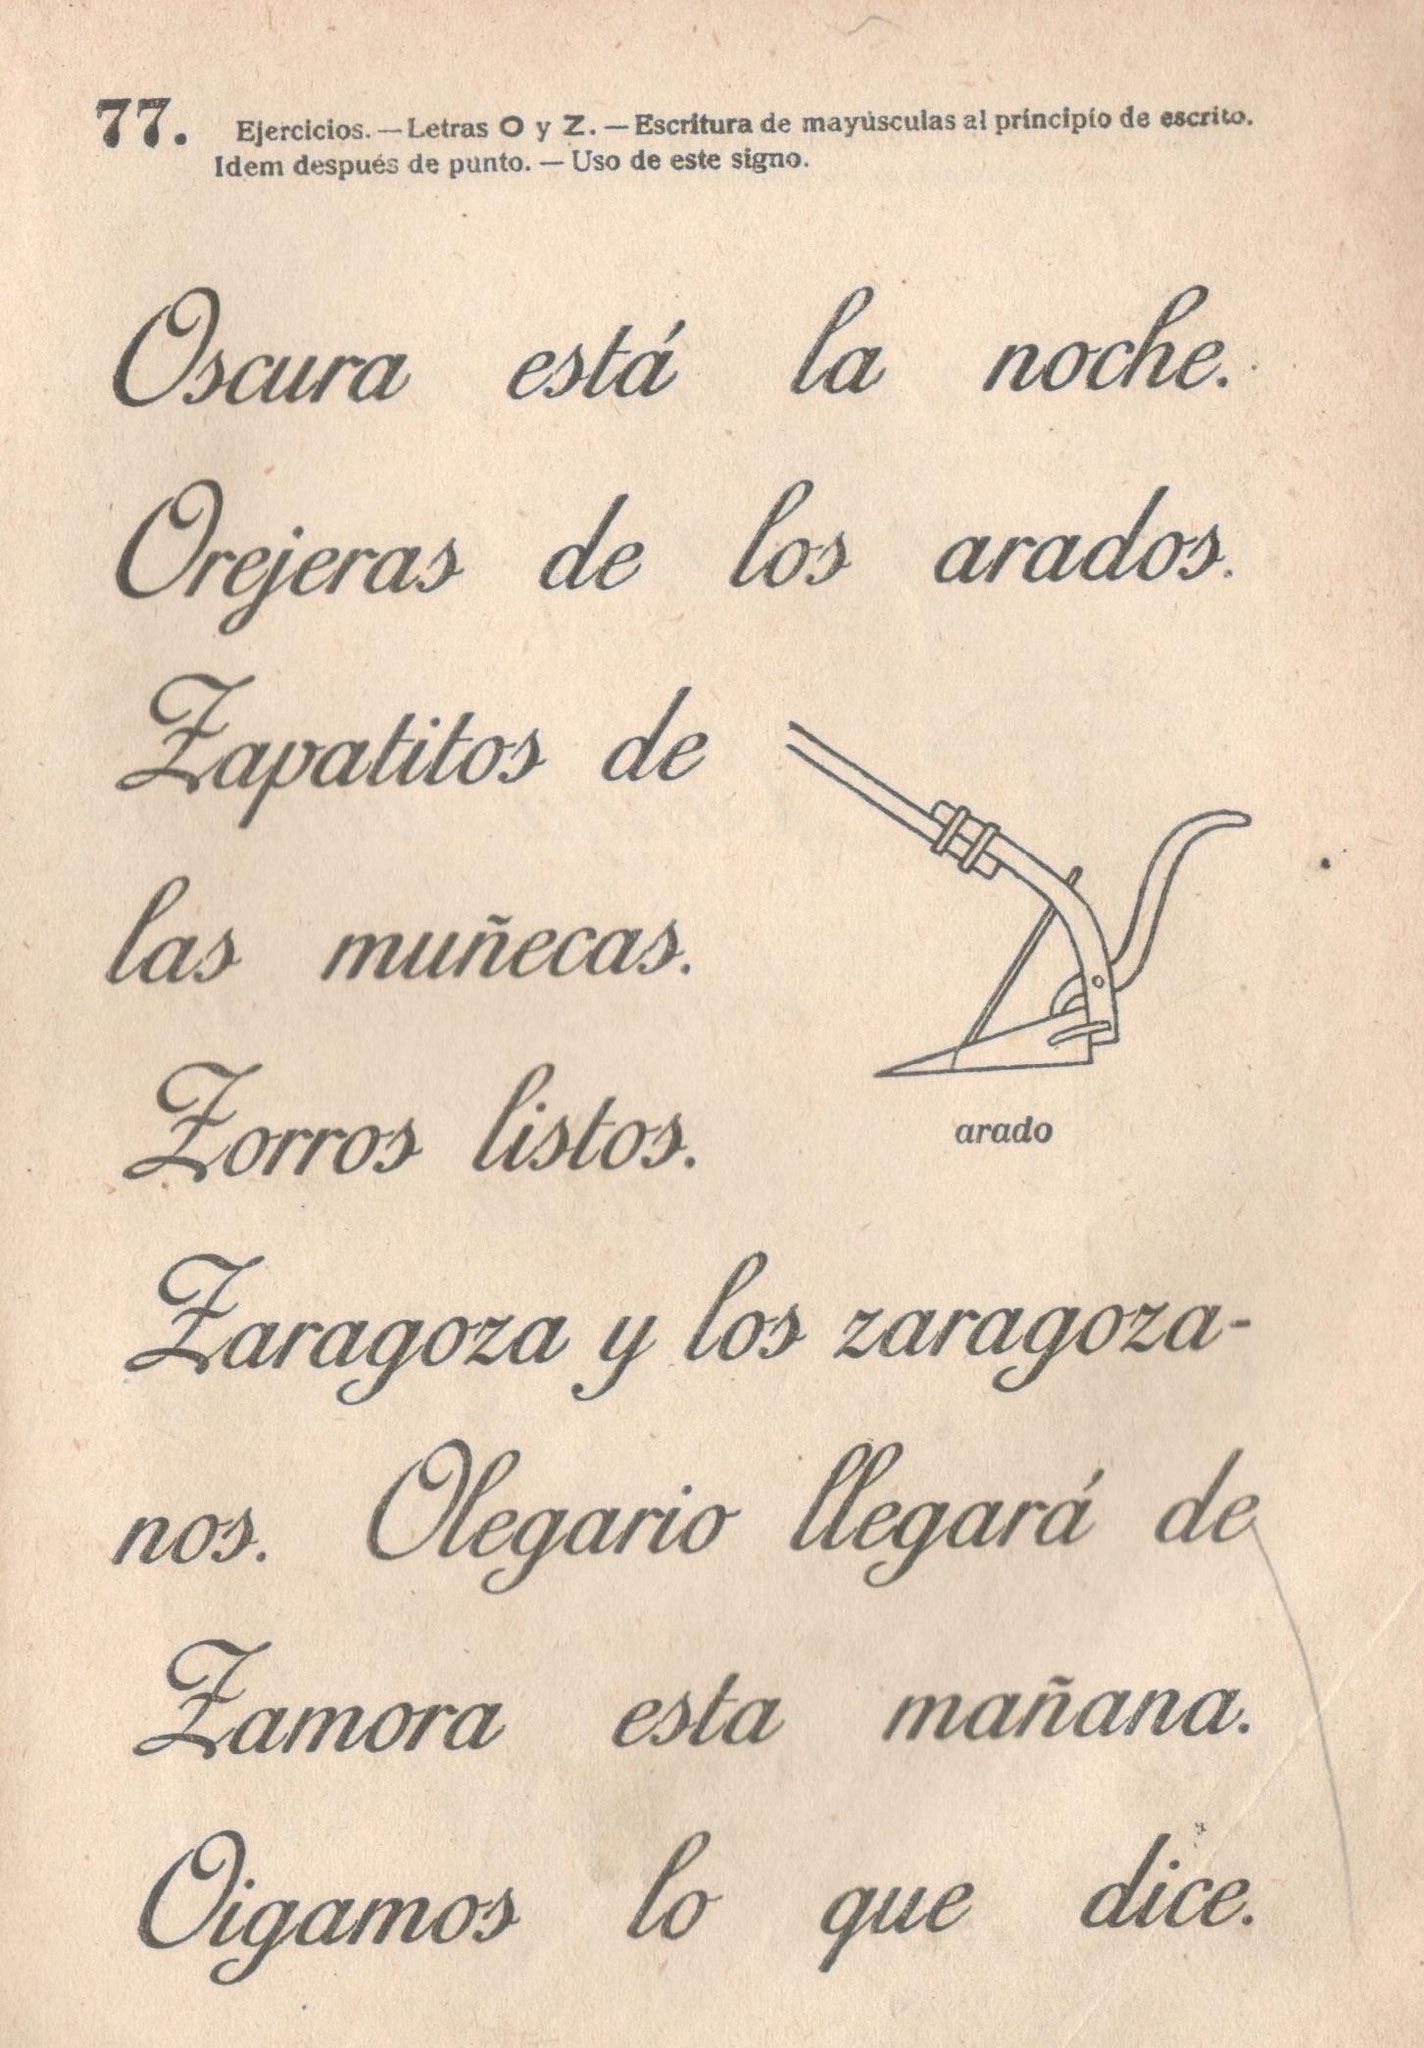 77. Ejercicios. — Letras O y Z. — Escritura de mayúsculas al principio de escrito.
Idem después de punto. — Uso de este signo.
Oscura está la noche.
Orejeras de los arados.
Zapatitos de
las muñecas.
Zorros listos.
arado
Zaragoza y los zaragoza-
nos. Olegario llegará de
Zamora esta mañana.
Oigamos lo que dice.